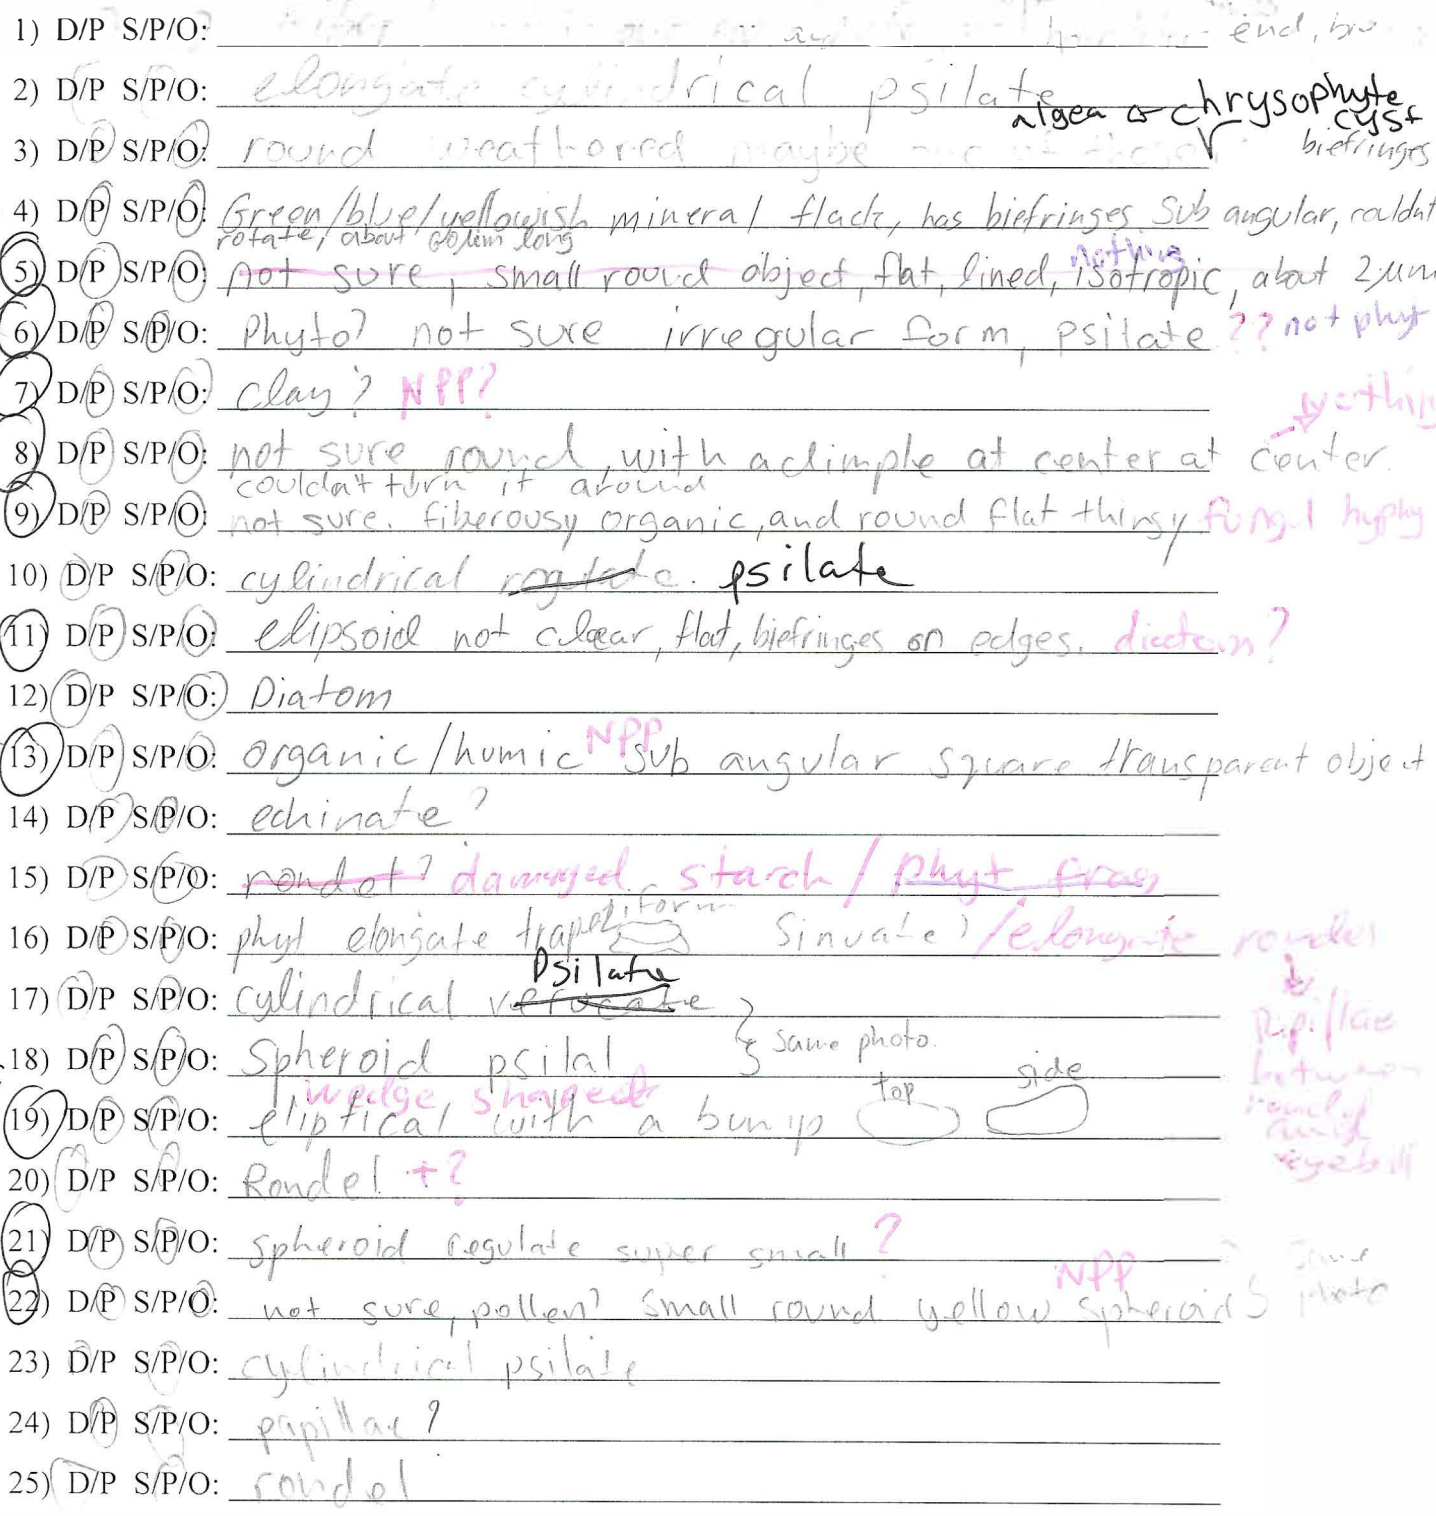 1) D/P S/P/O: end,
2) D/P S/P/O: elongate cylindrical psilate
algea or chrysophyte cyst
3) D/P S/P/O: round weathered maybe biefringes
4) D/P S/P/O: Green/blue/yellowish mineral flack, has biefringes. Sub angular, couldnt
rotate, about long
nothing
5) D/P S/P/O: not sure, small round object, flat, lined, isotropic, about 2µm
6) D/P S/P/O: Phyto? not sure irregular form, psilate ?? not phyt
7) D/P S/P/O: clay? NPP?
nothing
8) D/P S/P/O: not sure round, with a dimple at center at center.
couldn't turn it around
9) D/P S/P/O: not sure. fiberousy organic, and round flat thingy fungl hyphy
10) D/P S/P/O: cylindrical psilate
11) D/P S/P/O: elipsoid not clear, flat, biefringes on edges. diatom?
12) D/P S/P/O: Diatom
NPP
13) D/P S/P/O: organic/humic sub angular square transparent object
14) D/P S/P/O: echinate?
15) D/P S/P/O: rondel? damaged starch / phyt frag
16) D/P S/P/O: phyt elongate trapeziform Sinuate? /elongate rondel
papillae
between
Psilate
17) D/P S/P/O: cylindrical verucate
same photo.
18) D/P S/P/O: Spheroid psilal
wedge shaped
top side
19) D/P S/P/O: eliptical with a bump
20) D/P S/P/O: Rondel +?
21) D/P S/P/O: spheroid regulate super small ?
NPP
same photo
22) D/P S/P/O: not sure, pollen? small round yellow spheroids
23) D/P S/P/O: cylindrical psilate
24) D/P S/P/O: papillae?
25) D/P S/P/O: rondel